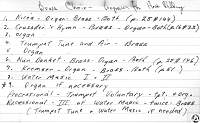 Brass Choir - Organ
1. Kirén - Organ - Brass - Both (p. 25 #14)
2. Crusader's Hymn - Brass - Organ - Both
3. Organ
4. Trumpet Tune and Air - Brass
5. Organ
6. Nun Danket - Brass - Organ - Both
7. Kremser - Organ - Brass
8. Water Music I - II
9. Organ if necessary
Processional - Trumpet Voluntary - tpt. + org.
Recessional - III of Water Music - twice - Brass
(Trumpet Tune + Water Music if needed)